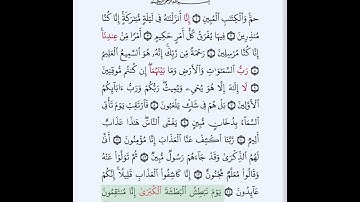 حمٓ ۝ وَٱلۡكِتَٰبِ ٱلۡمُبِينِ ۝ إِنَّآ أَنزَلۡنَٰهُ فِي لَيۡلَةٖ مُّبَٰرَكَةٍۚ إِنَّا كُنَّا
مُنذِرِينَ ۝ فِيهَا يُفۡرَقُ كُلُّ أَمۡرٍ حَكِيمٍ ۝ أَمۡرٗا مِّنۡ عِندِنَآۚ
إِنَّا كُنَّا مُرۡسِلِينَ ۝ رَحۡمَةٗ مِّن رَّبِّكَۚ إِنَّهُۥ هُوَ ٱلسَّمِيعُ ٱلۡعَلِيمُ
۝ رَبِّ ٱلسَّمَٰوَٰتِ وَٱلۡأَرۡضِ وَمَا بَيۡنَهُمَآۖ إِن كُنتُم مُّوقِنِينَ
۝ لَآ إِلَٰهَ إِلَّا هُوَ يُحۡيِۦ وَيُمِيتُۖ رَبُّكُمۡ وَرَبُّ ءَابَآئِكُمُ
ٱلۡأَوَّلِينَ ۝ بَلۡ هُمۡ فِي شَكّٖ يَلۡعَبُونَ ۝ فَٱرۡتَقِبۡ يَوۡمَ تَأۡتِي
ٱلسَّمَآءُ بِدُخَانٖ مُّبِينٖ ۝ يَغۡشَى ٱلنَّاسَۖ هَٰذَا عَذَابٌ
أَلِيمٞ ۝ رَّبَّنَا ٱكۡشِفۡ عَنَّا ٱلۡعَذَابَ إِنَّا مُؤۡمِنُونَ ۝ أَنَّىٰ
لَهُمُ ٱلذِّكۡرَىٰ وَقَدۡ جَآءَهُمۡ رَسُولٞ مُّبِينٞ ۝ ثُمَّ تَوَلَّوۡاْ عَنۡهُ
وَقَالُواْ مُعَلَّمٞ مَّجۡنُونٌ ۝ إِنَّا كَاشِفُواْ ٱلۡعَذَابِ قَلِيلًاۚ إِنَّكُمۡ
عَآئِدُونَ ۝ يَوۡمَ نَبۡطِشُ ٱلۡبَطۡشَةَ ٱلۡكُبۡرَىٰٓ إِنَّا مُنتَقِمُونَ